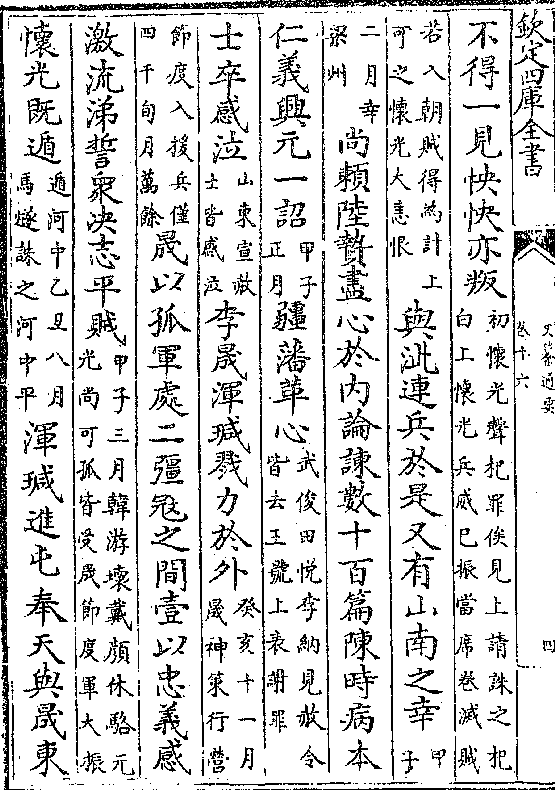 欽定四庫全書
史纂通要
卷十六
四
不得一見怏怏亦叛初懷光聲杞罪俟見上請誅之杞白上懷光兵威已振當席卷滅賊
若入朝賊得為計上可之懷光大恚恨與泚連兵於是又有山南之幸甲子
二月幸梁州尚賴陸贄盡心於内論諫數十百篇陳時病本
仁義興元一詔甲子正月疆藩革心武俊田悦李納見赦令皆去王號上表謝罪
士卒感泣山東宣赦士皆感泣李晟渾瑊戮力於外癸亥十一月晟神策行營
節度入援兵僅四千旬月萬餘晟以孤軍處二彊㓂之間壹以忠義感
激流涕誓衆决志平賊甲子三月韓游瓌戴顔休駱元光尚可孤皆受晟節度軍大振
懷光既遁遁河中乙丑八月馬燧誅之河中平渾瑊進屯奉天與晟東